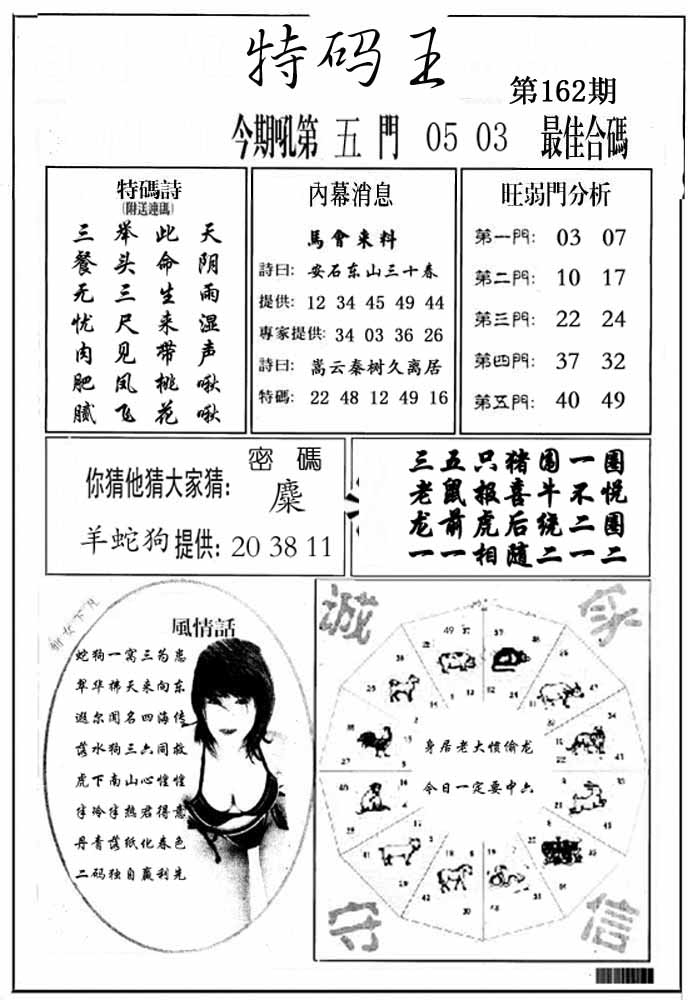 特码王
第162期
今期吼第 五 門 05 03 最佳合碼
特碼詩
(附送連碼)
三 举 此 天
餐 头 命 阴
无 三 生 雨
忧 尺 来 湿
肉 见 带 声
肥 凤 桃 啾
腻 飞 花 啾
內幕消息
馬會来料
詩曰: 安石东山三十春
提供: 12 34 45 49 44
專家提供: 34 03 36 26
詩曰: 嵩云秦树久离居
特碼: 22 48 12 49 16
旺弱門分析
第一門: 03 07
第二門: 10 17
第三門: 22 24
第四門: 37 32
第五門: 40 49
密 碼
你猜他猜大家猜: 麇
羊蛇狗 提供: 20 38 11
三五只猪围一圈
老鼠报喜牛不悦
龙前虎后绕二圈
一一相随二一二
仙女下凡
風情話
蛇狗一窝三为患
翠华拂天来向东
遐尔闻名四海传
落水狗三六同救
虎下南山心惶惶
半冷半热君得意
丹青落纸化春色
二码独自赢利先
诚 家
身居老大惯偷龙
今日一定要中六
守 信